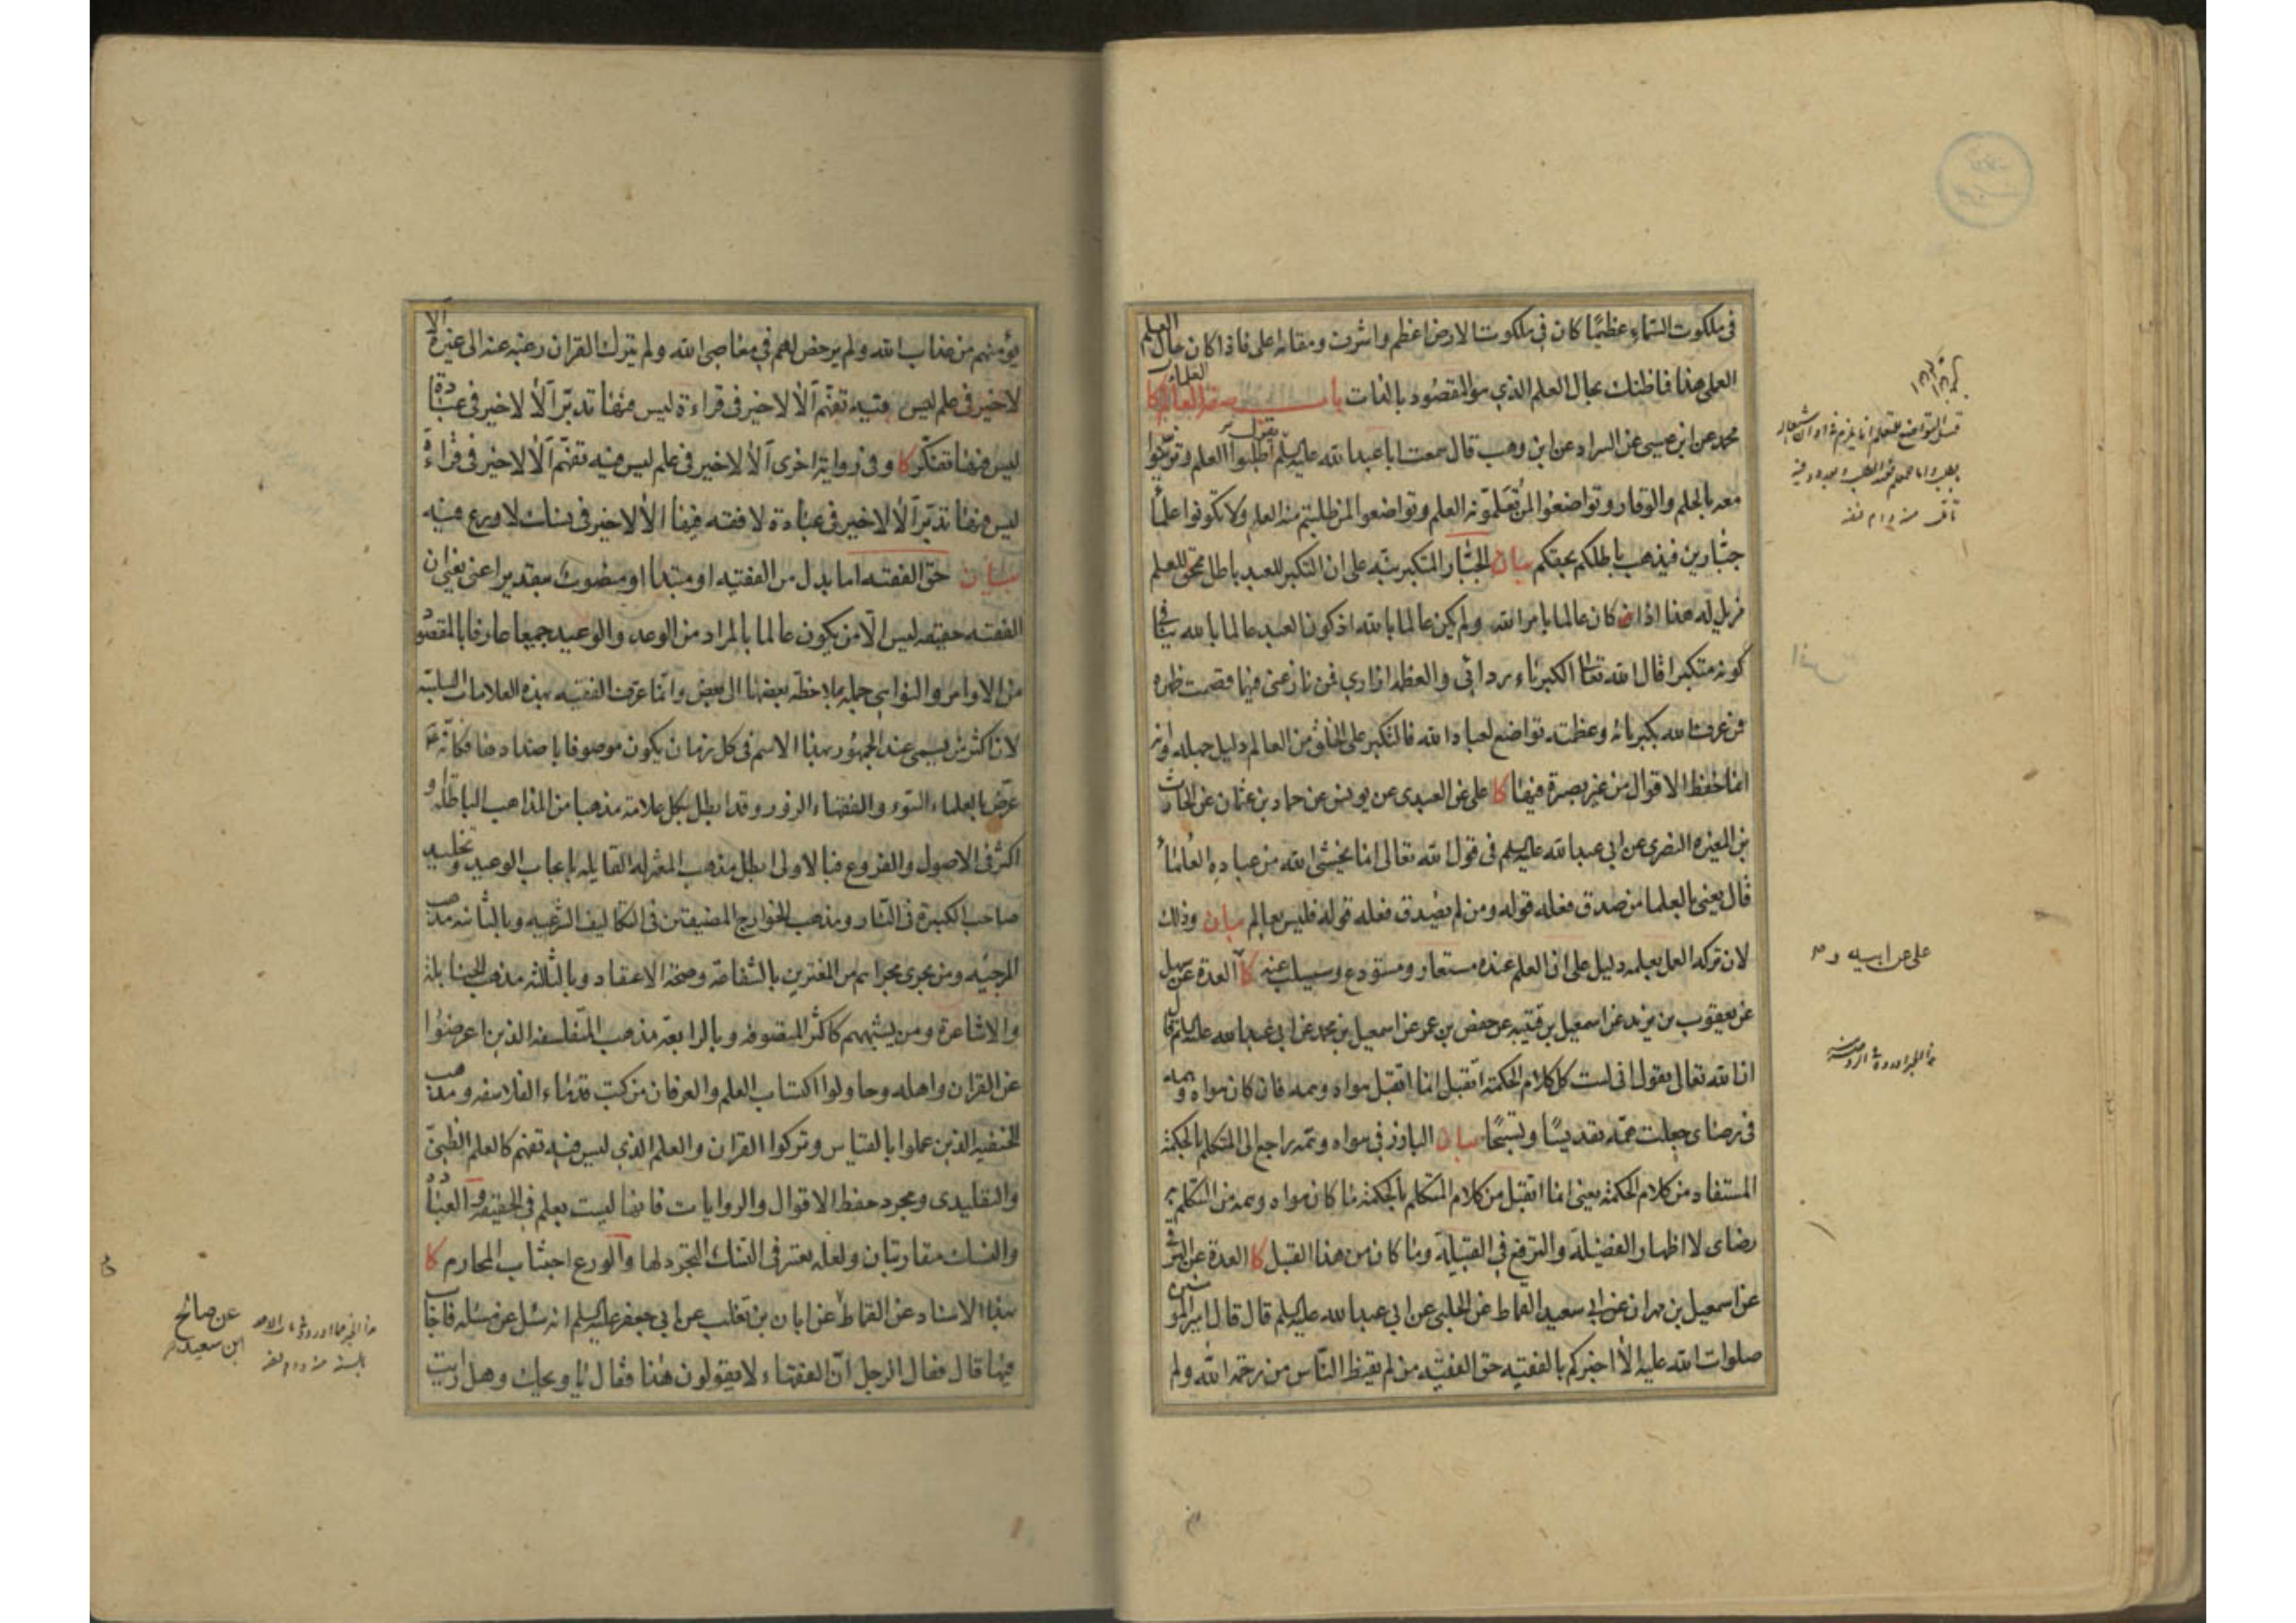 في ملكوت السماء عظيمًا كان في ملكوت الارض اعظم واشرف ومقامه اعلى فاذا كان حال العلم
العلى هذا فما ظنك بحال العلم الذي هو المقصود بالذات باب صفة العلماء كا
محمد عن ابن عيسى عن السراد عن ابن وهب قال سمعت ابا عبد الله عليه السلم يقول اطلبوا العلم وتزينوا
معه بالحلم والوقار وتواضعوا لمن تعلمونه العلم وتواضعوا لمن طلبتم منه العلم ولا تكونوا علماء
جبارين فيذهب باطلكم بحقكم بيان الجبار المتكبر نبه على ان التكبر للعبد باطل محق للعلم
مزيل له هذا اذا كان عالما بامر الله ولم يكن عالما بالله اذ كون العبد عالما بالله ينافي
كونه متكبرا قال الله تعالى الكبرياء ردائي والعظمة ازاري فمن نازعني فيهما قصمت ظهره
فمن عرف الله بكبريائه وعظمته تواضع لعباد الله فالتكبر على الخلق من العالم دليل جهله او انه
انما حفظ الاقوال من غير بصيرة فيها كا علي عن العبيدي عن يونس عن حماد بن عثمان عن الحارث
بن المغيرة النصري عن ابي عبد الله عليه السلم في قول الله تعالى انما يخشى الله من عباده العلماء
قال يعني بالعلما من صدق فعله قوله ومن لم يصدق فعله قوله فليس بعالم بيان وذلك
لان تركه العمل بعلمه دليل على ان العلم عنده مستعار ومستودع وسيسلب عنه كا العدة عن سهل
عن يعقوب بن يزيد عن اسمعيل بن قتيبة عن حفص بن عمر عن اسمعيل بن محمد عن ابي عبد الله عليه السلم قال
ان الله تعالى يقول اني لست كل كلام الحكمة اتقبل انما اتقبل هواه وهمه فان كان هواه وهمه
في رضاي جعلت همه تقديسًا وتسبيحًا بيان البارز في هواه وهمه راجع الى المتكلم بالحكمة
المستفاد من كلام الحكمة يعني انما اتقبل من كلام المتكلم بالحكمة ما كان هواه وهمه من التكلم به
رضاي لا اظهار الفضيلة والترفع في القبيلة وما كان من هذا القبل كا العدة عن البرقي
عن اسمعيل بن مهران عن ابي سعيد القماط عن الحلبي عن ابي عبد الله عليه السلم قال قال امير المومنين
صلوات الله عليه الا اخبركم بالفقيه حق الفقيه من لم يقنط الناس من رحمة الله ولم
على عن ابيه
يؤمنهم من عذاب الله ولم يرخص لهم في معاصي الله ولم يترك القران رغبة عنه الى غيره الا
لا خير في علم ليس فيه تفهم الا لا خير في قراءة ليس فيها تدبر الا لا خير في عبادة
ليس فيها تفكر كا وفي رواية اخرى الا لا خير في علم ليس فيه تفهم الا لا خير في قراءة
ليس فيها تدبر الا لا خير في عبادة لا فقه فيها الا لا خير في نسك لا ورع فيه
بيان حق الفقيه اما بدل من الفقيه او مبتدا او منصوب بتقدير اعني يعني ان
الفقيه حقيقة ليس الا من يكون عالما بالمراد من الوعد والوعيد جميعا عارفا بالمقصود
من الاوامر والنواهي جملة بملاحظة بعضها الى بعض وانما عرف الفقيه بهذه العلامات السلبية
لان اكثر من يسمى عند الجمهور بهذا الاسم في كل زمان يكون موصوفا باضدادها فكانه ع
عرض بالعلماء السوء والفقهاء الزور وقد ابطل بكل علامة مذهبا من المذاهب الباطلة و
اكثر في الاصول والفروع فبالاولى ابطل مذهب المعتزلة القايلة بايجاب الوعيد وتخليد
صاحب الكبيرة في النار ومذهب الخوارج المضيقين في التكاليف الشرعية وبالثانية مذهب
المرجئة ومن يجري مجراهم من المغترين بالشفاعة وصحة الاعتقاد وبالثالثة مذهب الحنابلة
والاشاعرة ومن يشبههم كاكثر المتصوفة وبالرابعة مذهب المتفلسفة الذين اعرضوا
عن القران واهله وحاولوا اكتساب العلم والعرفان من كتب قدماء الفلاسفة ومذهب
الحنفية الذين عملوا بالقياس وتركوا القران والعلم الذي ليس فيه تفهم كالعلم الظني
والتقليدي ومجرد حفظ الاقوال والروايات فانها ليست بعلم في الحقيقة والعبادة
والنسك متقاربان ولعله يعتبر في النسك التجرد لها والورع اجتناب المحارم كا
بهذا الاسناد عن القماط عن ابان بن تغلب عن ابي جعفر عليه السلم انه سئل عن مسئلة فاجاب
فيها قال فقال الرجل ان الفقهاء لا يقولون هذا فقال يا ويحك وهل رايت
عن صالح
ابن سعيد